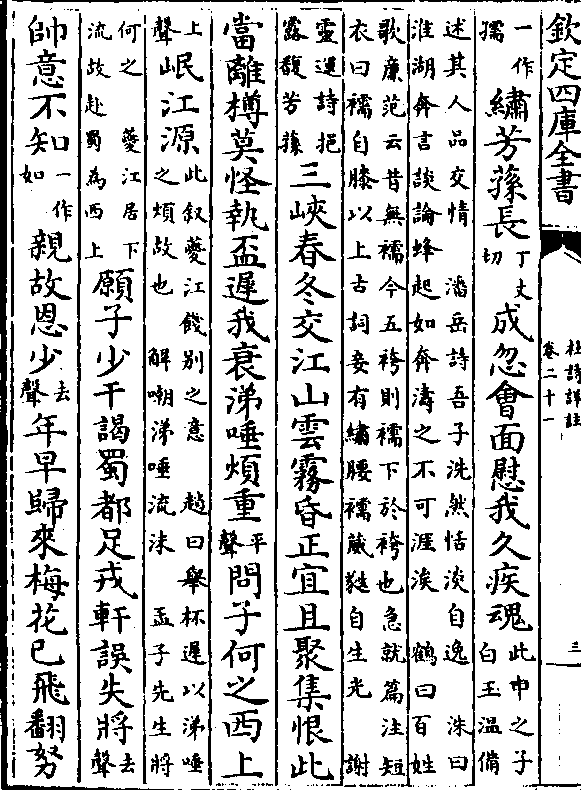 欽定四庫全書
杜詩詳註
卷二十一
三
一作
孺
繡芳蓀長
丁丈
切
成忽會面慰我久疾魂
此申之子
白玉溫備
述其人品交情　潘岳詩吾子洗然恬淡自逸　洙曰
淮湖奔言談論蜂起如奔濤之不可涯涘　鶴曰百姓
歌廉范云昔無襦今五袴則襦下於袴也急就篇注短
衣曰襦自膝以上古詞妾有繡腰襦葳蕤自生光　謝
靈運詩挹
露馥芳蓀
三峽春冬交江山雲霧昏正宜且聚集恨此
當離樽莫怪執盃遲我衰涕唾煩重
平
聲
問子何之西上
上
聲
岷江源
此叙夔江餞別之意　趙曰舉杯遲以涕唾
之煩故也　解嘲涕唾流沫　孟子先生將
何之　夔江居下
流故赴蜀為西上
願子少干謁蜀都足戎軒誤失將
去
聲
帥意不知
一作
如
親故恩少
去
聲
年早歸來梅花已飛翻努